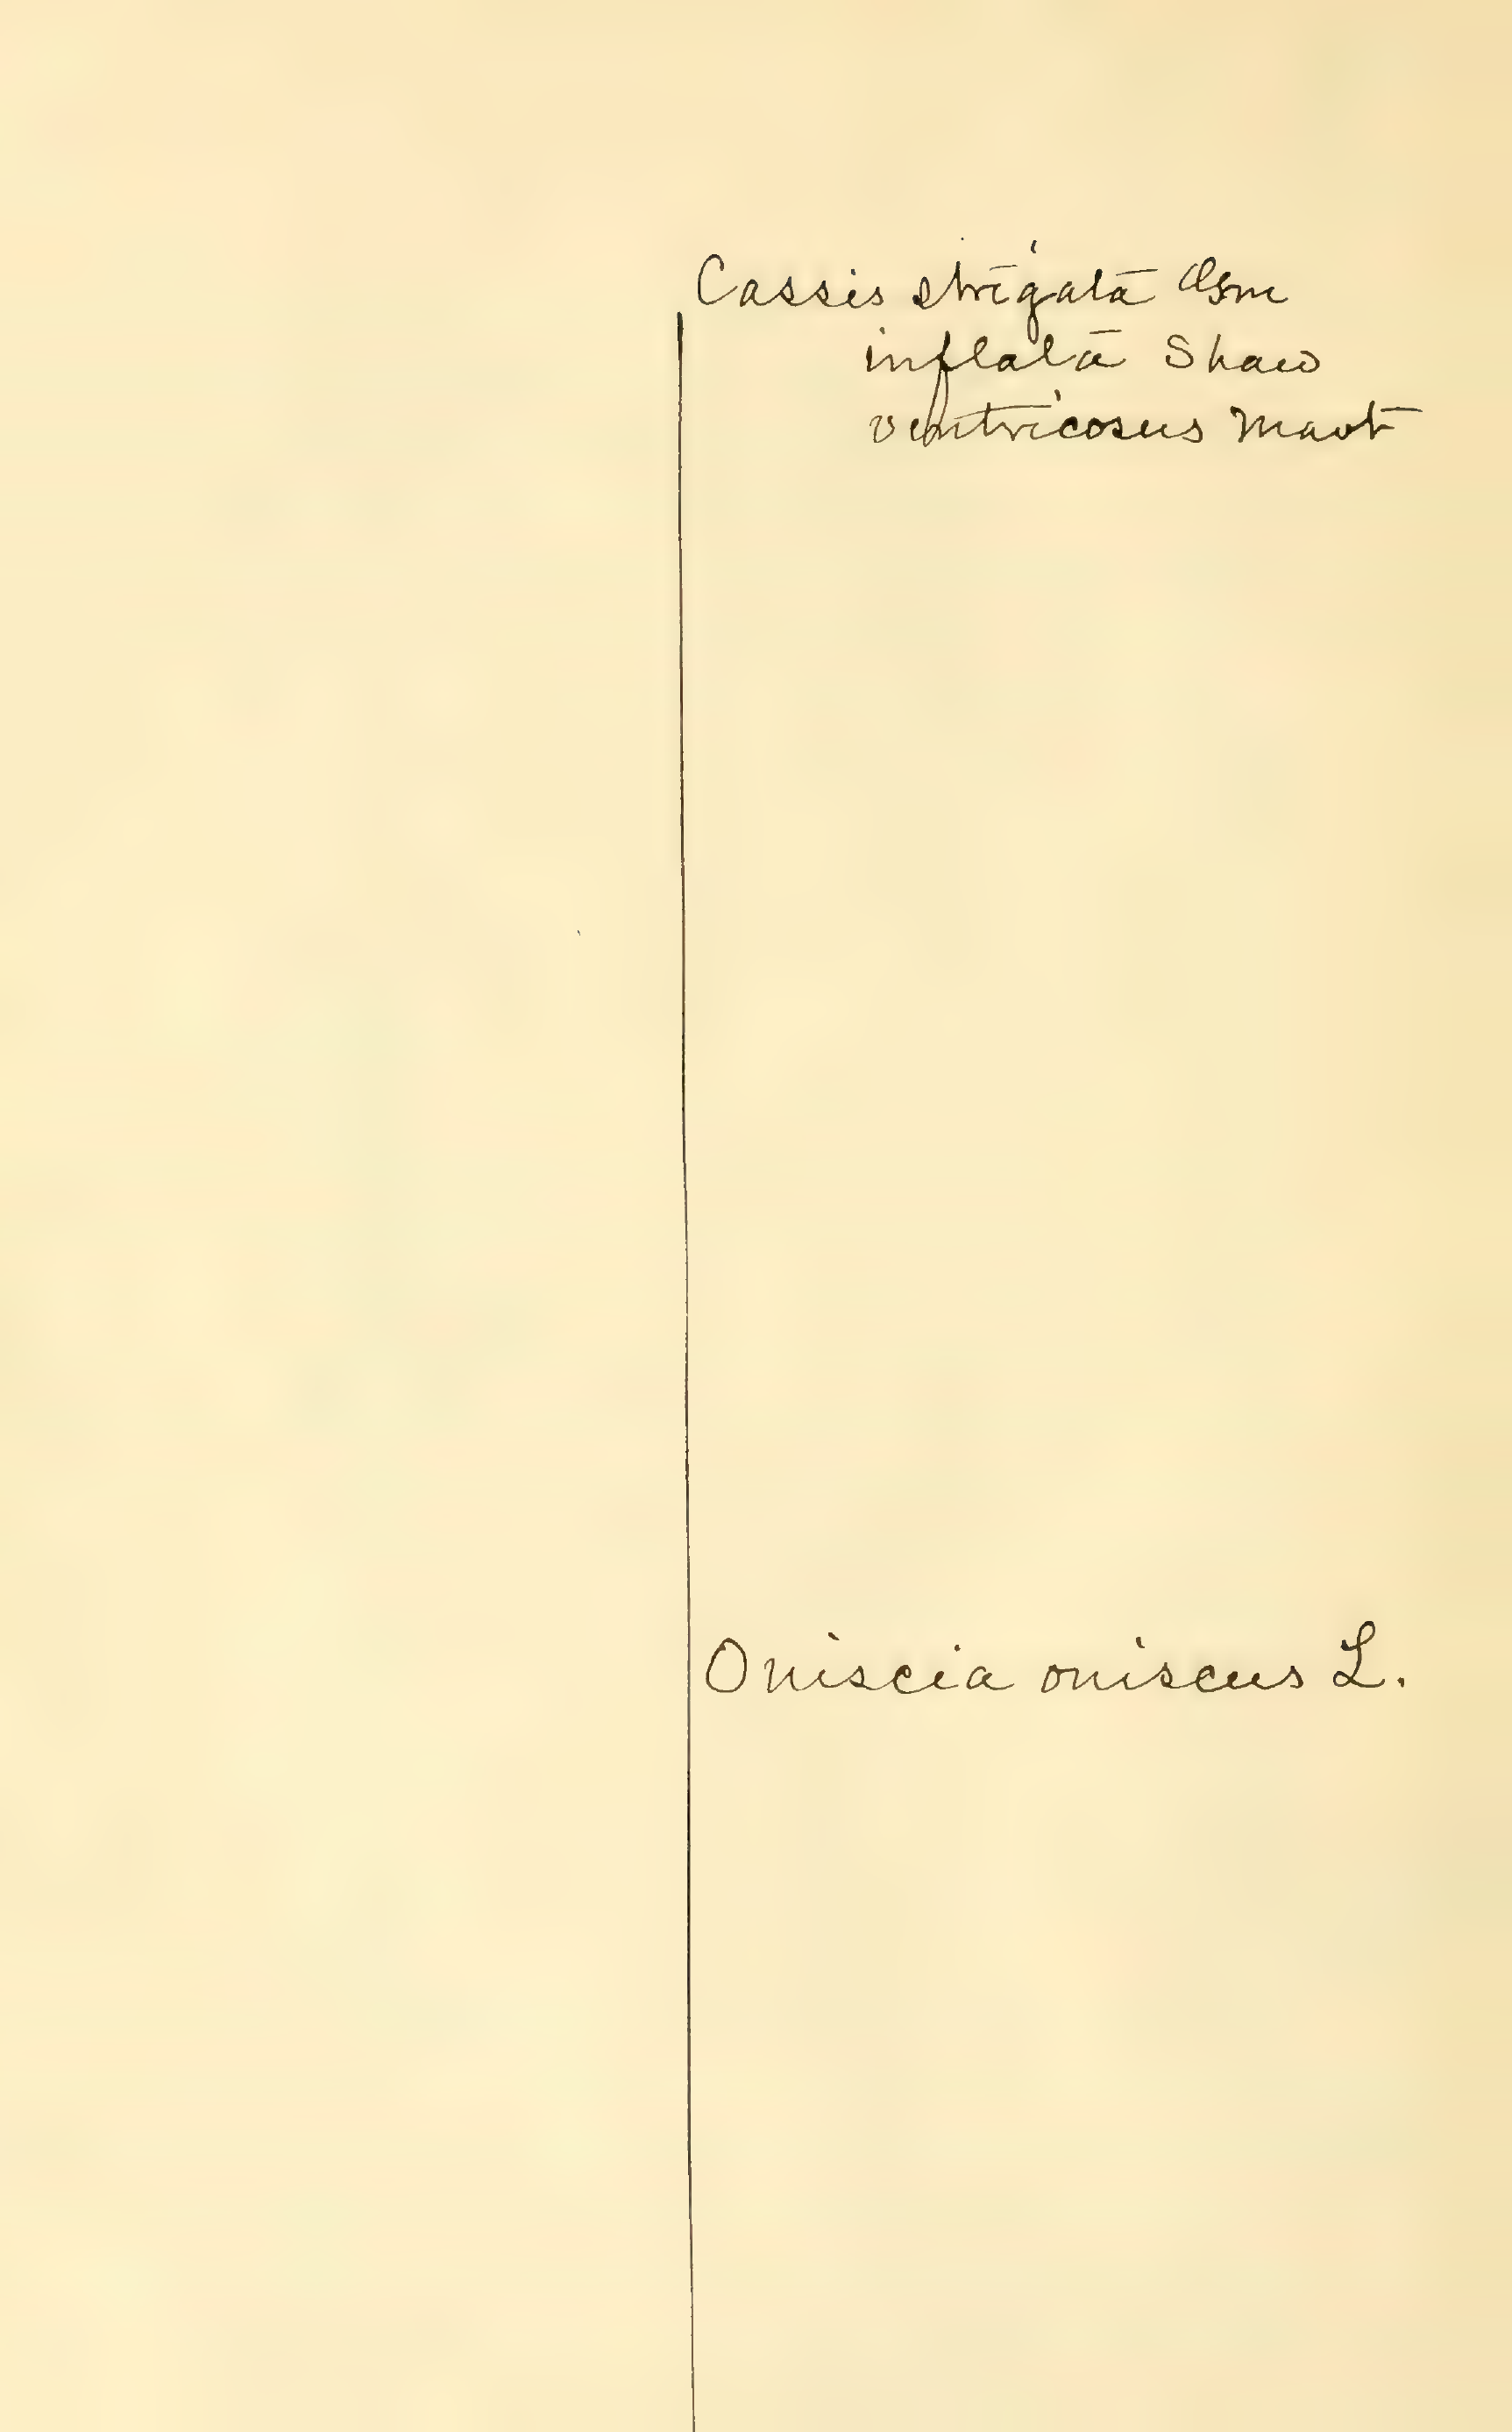 Cassis strigata Gm
inflata Shaw
ventricosus Mart
Oniscia oniscus L.